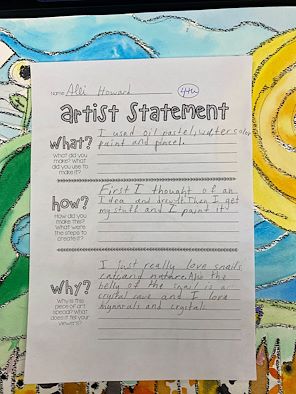 Name Alli Howard 4th
artist Statement
what?
What did you
make? What
did you use to
make it?
I used oil pastel, water color
paint and pincel.
how?
How did you
make this?
What were
the steps to
create it?
First I thought of an
Idea and drew it. Then I get
my stuff and I paint it!
why?
Why is this
piece of art
special? What
does it tell your
viewers?
I just really love snails
and nature. Also the
belly of the snail is a
crystal cave and I love
mynnrals and crystals